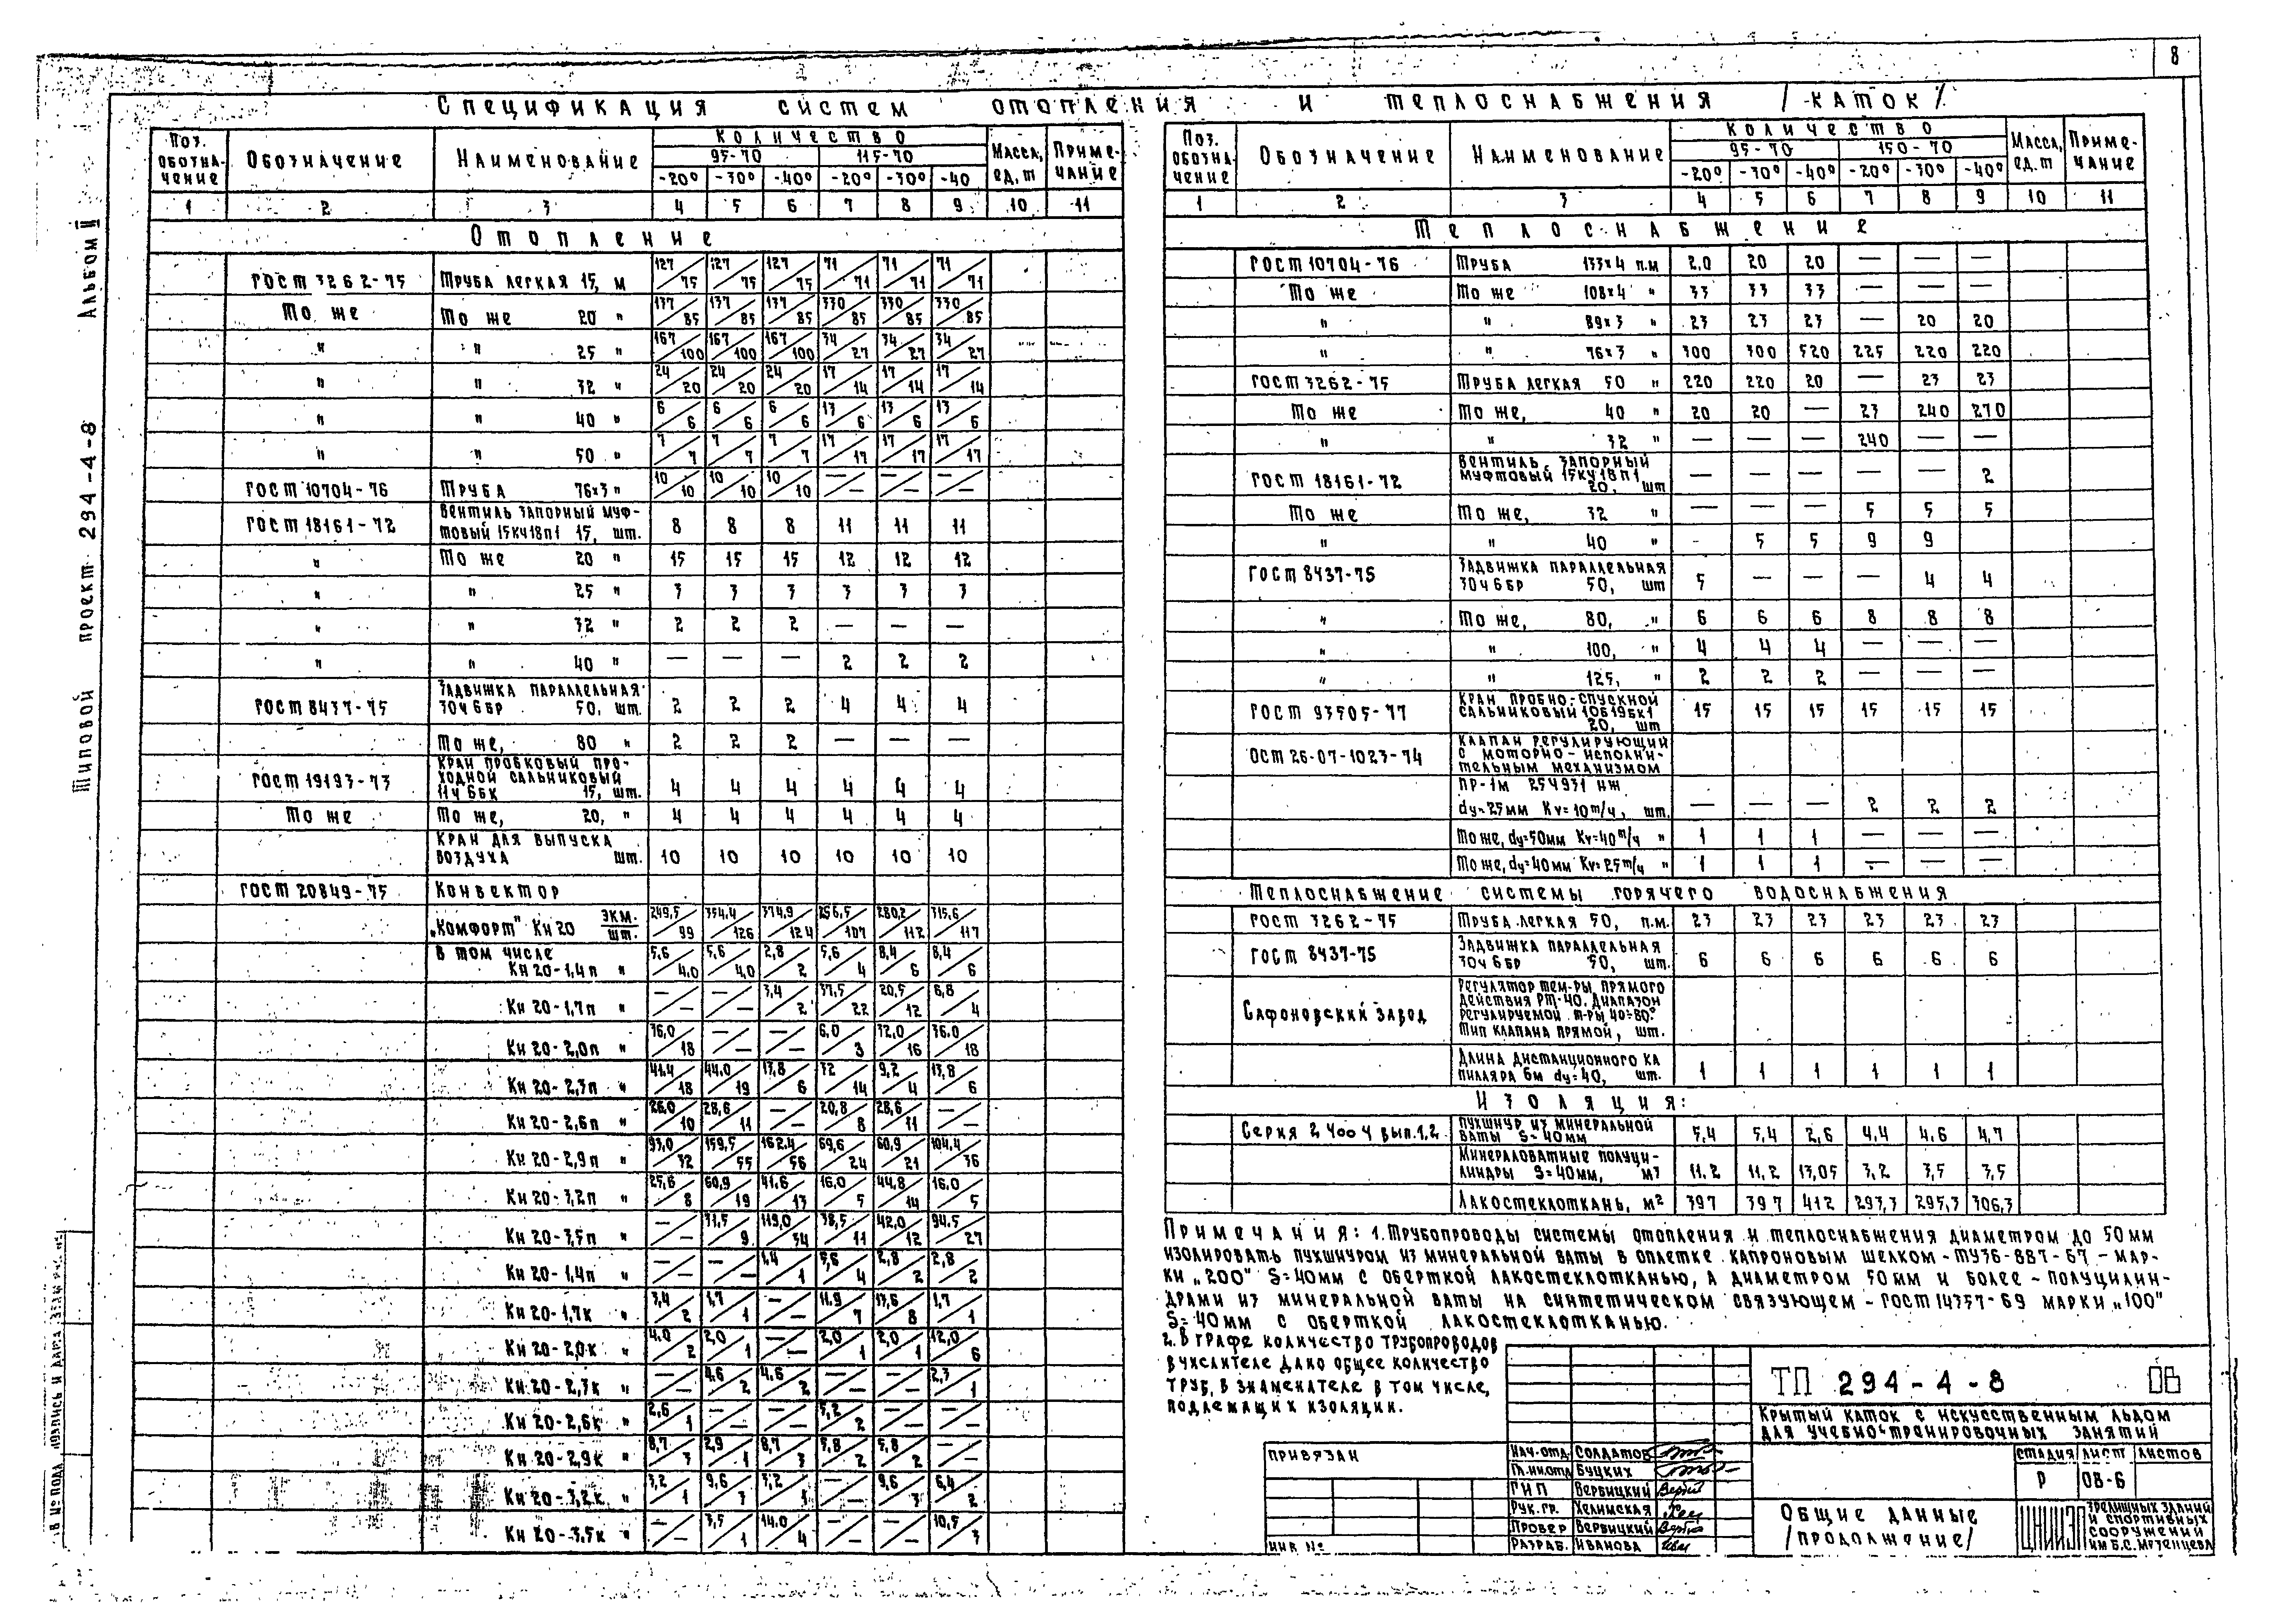 8
Спецификация систем отопления и теплоснабжения /каток/
Альбом II
Типовой проект 294-4-8
Поз. обозна-чение | Обозначение | Наименование | Количество | Масса, ед, т | Приме-чание
95-70 | 115-70
-20° | -30° | -40° | -20° | -30° | -40
1 | 2 | 3 | 4 | 5 | 6 | 7 | 8 | 9 | 10 | 11
Отопление
ГОСТ 3262-75 | Труба легкая 15, м | 127/75 | 127/75 | 127/75 | 71/71 | 71/71 | 71/71
То же | То же 20 " | 137/85 | 137/85 | 137/85 | 330/85 | 330/85 | 330/85
" | " 25 " | 167/100 | 167/100 | 167/100 | 34/27 | 34/27 | 34/27
" | " 32 " | 24/20 | 24/20 | 24/20 | 17/14 | 17/14 | 17/14
" | " 40 " | 6/6 | 6/6 | 6/6 | 13/6 | 13/6 | 13/6
" | " 50 " | 7/7 | 7/7 | 7/7 | 17/17 | 17/17 | 17/17
ГОСТ 10704-76 | Труба 76х3 " | 10/10 | 10/10 | 10/10 | —/— | —/— | —/—
ГОСТ 18161-72 | Вентиль запорный муф-
товый 15кч18п1 15, шт. | 8 | 8 | 8 | 11 | 11 | 11
" | То же 20 " | 15 | 15 | 15 | 12 | 12 | 12
" | " 25 " | 3 | 3 | 3 | 3 | 3 | 3
" | " 32 " | 2 | 2 | 2 | — | — | —
" | " 40 " | — | — | — | 2 | 2 | 2
ГОСТ 8437-75 | Задвижка параллельная
30ч6бр 50, шт. | 2 | 2 | 2 | 4 | 4 | 4
То же, 80 " | 2 | 2 | 2 | — | — | —
ГОСТ 19193-73 | Кран пробковый про-
ходной сальниковый
11ч6бк 15, шт. | 4 | 4 | 4 | 4 | 4 | 4
То же | То же, 20, " | 4 | 4 | 4 | 4 | 4 | 4
Кран для выпуска
воздуха шт. | 10 | 10 | 10 | 10 | 10 | 10
ГОСТ 20849-75 | Конвектор
„Комфорт" Кн20 экм./шт. | 249,5/99 | 354,4/126 | 374,9/124 | 256,5/107 | 280,2/112 | 315,6/117
В том числе
Кн 20-1,4п " | 5,6/4,0 | 5,6/4,0 | 2,8/2 | 5,6/4 | 8,4/6 | 8,4/6
Кн 20-1,7п " | —/— | —/— | 3,4/2 | 37,5/22 | 20,5/12 | 6,8/4
Кн 20-2,0п " | 36,0/18 | —/— | —/— | 6,0/3 | 32,0/16 | 36,0/18
Кн 20-2,3п " | 41,4/18 | 44,0/19 | 13,8/6 | 32/14 | 9,2/4 | 13,8/6
Кн 20-2,6п " | 26,0/10 | 28,6/11 | —/— | 20,8/8 | 28,6/11 | —/—
Кн 20-2,9п " | 93,0/32 | 159,5/55 | 162,4/56 | 69,6/24 | 60,9/21 | 104,4/36
Кн 20-3,2п " | 25,6/8 | 60,9/19 | 41,6/13 | 16,0/5 | 44,8/14 | 16,0/5
Кн 20-3,5п " | —/— | 31,5/9 | 119,0/34 | 38,5/11 | 42,0/12 | 94,5/27
Кн 20-1,4п " | —/— | —/— | 1,4/1 | 5,6/4 | 2,8/2 | 2,8/2
Кн 20-1,7к " | 3,4/2 | 1,7/1 | —/— | 11,9/7 | 13,6/8 | 1,7/1
Кн 20-2,0к " | 4,0/2 | 2,0/1 | —/— | 2,0/1 | 2,0/1 | 12,0/6
Кн 20-2,3к " | —/— | 4,6/2 | 4,6/2 | —/— | —/— | 2,3/1
Кн 20-2,6к " | 2,6/1 | —/— | —/— | 5,2/2 | —/— | —/—
Кн 20-2,9к " | 8,7/3 | 2,9/1 | 8,7/3 | 5,8/2 | 5,8/2 | —/—
Кн 20-3,2к " | 3,2/1 | 9,6/3 | 3,2/1 | —/— | 9,6/3 | 6,4/2
Кн 20-3,5к " | —/— | 3,5/1 | 14,0/4 | —/— | —/— | 10,5/3
Поз. обозна-чение | Обозначение | Наименование | Количество | Масса, ед, т | Приме-чание
95-70 | 150-70
-20° | -30° | -40° | -20° | -30° | -40°
1 | 2 | 3 | 4 | 5 | 6 | 7 | 8 | 9 | 10 | 11
Теплоснабжение
ГОСТ 10704-76 | Труба 133х4 п.м | 2,0 | 20 | 20 | — | — | —
То же | То же 108х4 " | 33 | 33 | 33 | — | — | —
" | " 89х3 " | 23 | 23 | 23 | — | 20 | 20
" | " 76х3 " | 300 | 300 | 520 | 225 | 220 | 220
ГОСТ 3262-75 | Труба легкая 50 " | 220 | 220 | 20 | — | 23 | 23
То же | То же, 40 " | 20 | 20 | — | 23 | 240 | 270
" | " 32 " | — | — | — | 240 | — | —
ГОСТ 18161-72 | Вентиль запорный
муфтовый 15кч18п1
20, шт | — | — | — | — | — | 2
То же | То же, 32 " | — | — | — | 5 | 5 | 5
" | " 40 " | - | 5 | 5 | 9 | 9
ГОСТ 8437-75 | Задвижка параллельная
30ч6бр 50, шт | 5 | — | — | — | 4 | 4
" | То же, 80, " | 6 | 6 | 6 | 8 | 8 | 8
" | " 100, " | 4 | 4 | 4 | — | — | —
" | " 125, " | 2 | 2 | 2 | — | — | —
ГОСТ 93505-77 | Кран пробно-спускной
сальниковый 10б19бк1
20, шт | 15 | 15 | 15 | 15 | 15 | 15
ОСТ 26-07-1023-74 | Клапан регулирующий
с моторно-исполни-
тельным механизмом
ПР-1м 25ч931 нж
dу=25мм Кv=10т/ч, шт. | — | — | — | 2 | 2 | 2
То же, dу=50мм Кv=40т/ч " | 1 | 1 | 1 | — | — | —
То же, dу=40мм Кv=25т/ч " | 1 | 1 | 1 | — | — | —
Теплоснабжение системы горячего водоснабжения
ГОСТ 3262-75 | Труба легкая 50, п.м. | 23 | 23 | 23 | 23 | 23 | 23
ГОСТ 8437-75 | Задвижка параллельная
30ч6бр 50, шт. | 6 | 6 | 6 | 6 | 6 | 6
Сафоновский завод | Регулятор тем-ры прямого
действия РТ-40. Диапазон
регулируемой т-ры 40÷80°
Тип клапана прямой, шт.
Длина дистанционного ка
пилляра 6м dу=40, шт. | 1 | 1 | 1 | 1 | 1 | 1
Изоляция:
Серия 2 400 4 вып.1,2 | Пухшнур из минеральной
ваты S=40мм | 5,4 | 5,4 | 2,6 | 4,4 | 4,6 | 4,7
Минераловатные полуци-
линдры S=40мм, м3 | 11,2 | 11,2 | 13,05 | 3,2 | 3,5 | 3,5
Лакостеклоткань, м2 | 397 | 397 | 412 | 293,3 | 295,3 | 306,3
Примечания: 1. Трубопроводы системы отопления и теплоснабжения диаметром до 50 мм
изолировать пухшнуром из минеральной ваты в оплетке капроновым шелком-ТУ36-887-67-мар-
ки „200" S=40мм с оберткой лакостеклотканью, а диаметром 50 мм и более - полуцилин-
драми из минеральной ваты на синтетическом связующем - ГОСТ 14357-69 марки „100"
S=40мм с оберткой лакостеклотканью.
2. В графе количество трубопроводов
в числителе дано общее количество
труб, в знаменателе в том числе,
подлежащих изоляции.
Привязан
Инв №
Нач.отд. Солдатов
Гл.ин.отд Буцких
ГИП Вербицкий
Рук.гр. Хелимская
Провер Вербицкий
Разраб. Иванова
ТП 294-4-8 ОВ
Крытый каток с искусственным льдом
для учебно-тренировочных занятий
Стадия | Лист | Листов
Р | ОВ-6
Общие данные
/продолжение/
ЦНИИЭП зрелищных зданий
и спортивных
сооружений
им Б.С. Мезенцева